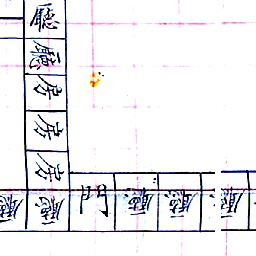 廳
廳
房
房
房
廳 廳 門 廳 廳 廳